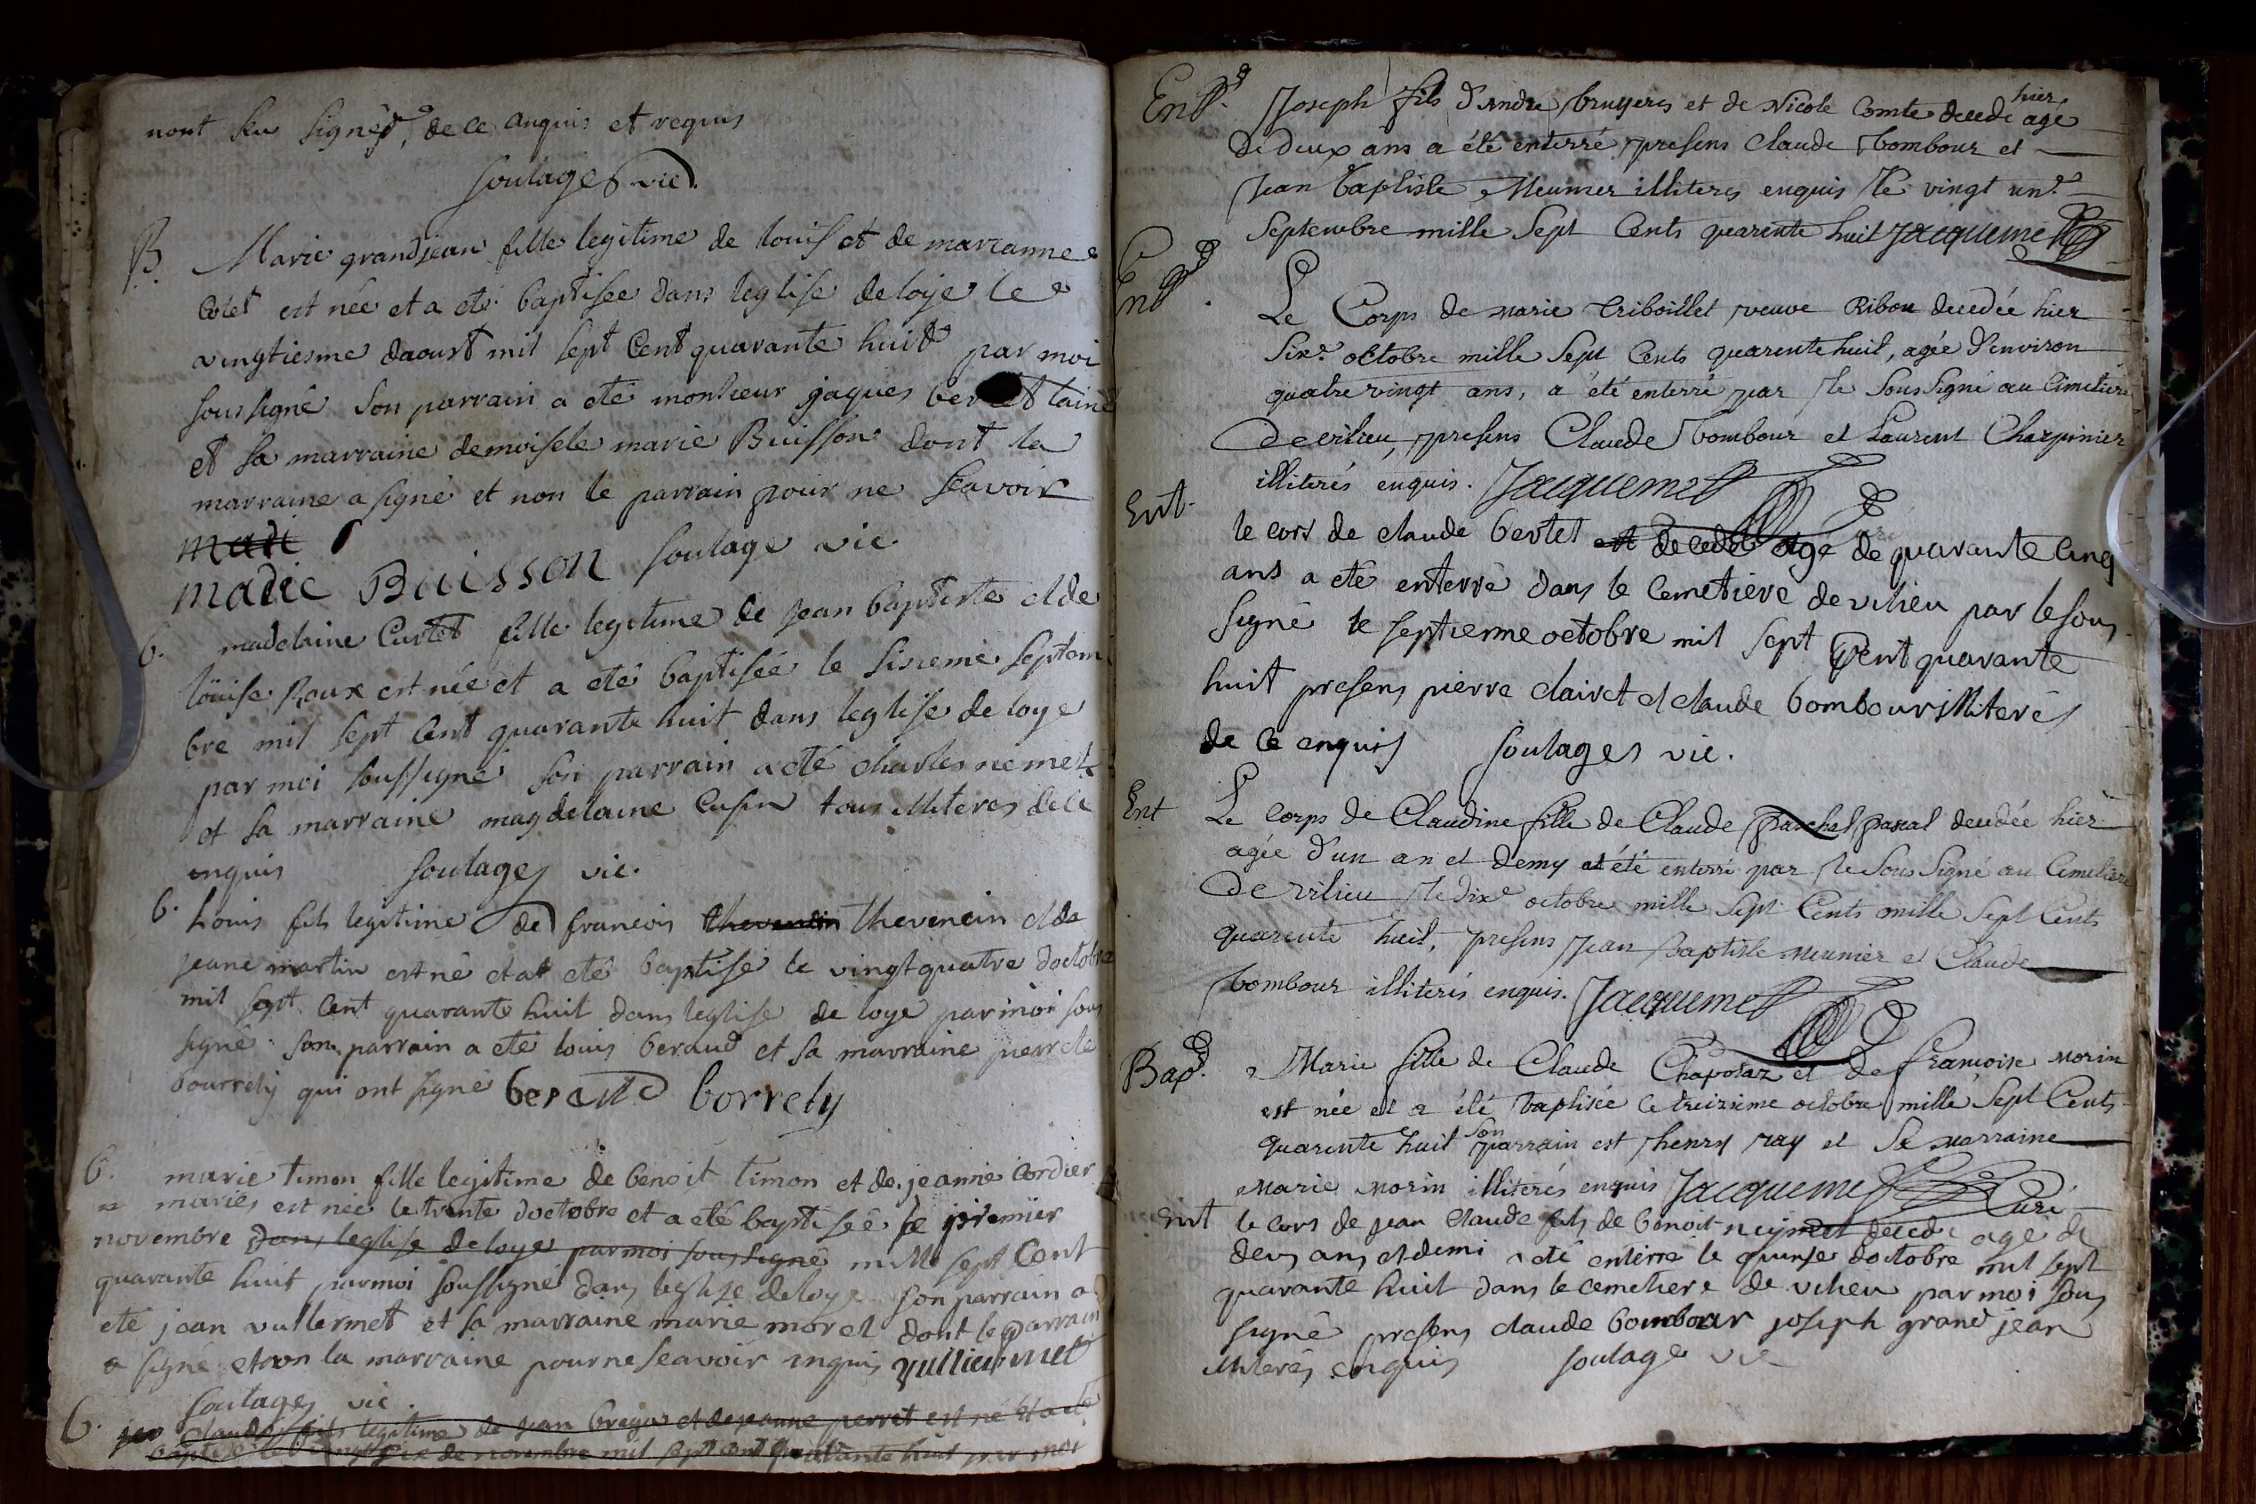 nont seu signér, de ce anquis et requis
soulages vic.
B. Marie grandjean fille legitime de louis et de marianne
Colet est née et a eté baptisée dans leglise de loije le
vingtiesme daoust mil sept Cent quarante huit par moi
sous signé son parrain a eté monsieur jaques laine
et sa marraine demoisele marie Buisson dont la
marraine a signé et non le parrain pour ne scavoir
marie
marie Buisson soulages vic
b. madelaine Curtet fille legitime de jean baptiste et de
loüise Roux est née et a eté baptisée le sixieme septem
bre mil sept Cent quarante huit dans leglise de loye
par moi soussigné son parrain a eté charles nemet
et sa marraine magdelaine Cusin tous illiteres de ce
enquis soulages vic.
b. Louis fils legitime de francois thevenin thevenin et de
jeane martin est né et at eté baptisé le vingt quatre doctobre
mil sept Cent quarante huit dans leglise de loye par moi sous
signé son parrain a eté louis beraud et sa marraine pierrete
bourrely qui ont signé beraud borrely
b. marie timon fille legitime de benoit timon et de jeanne cordier
mariés est née le trente doctobre et a eté baptisée le premier
novembre dans leglise de loye par moi sous signé mille sept Cent
quarante huit par moi soussigné dans leglise de loye son parrain a
eté jean vullermet et sa marraine marie morel dont le parrain
a signé et non la marraine pour ne scavoir enquis vulliermet
soulages vic.
b. claude fils legitime de jean et de jeanne perret est né et a eté
baptisé le de novembre mil sept cent quarante huit par moi
Entt. Joseph fils d'andré bruyeres et de Nicole Comte decedé hier agé
de deux ans a été enterré, presens Claude bombour et
jean baptiste Meunier illiterés enquis le vingt un.e
septembre mille sept Cents quarente huit Jacquemet
Entt. Le Corps de marie Triboillet veuve Ribou decedée hier
six.e octobre mille sept Cents quarente huit, agée d'environ
quatre vingt ans, a été enterré par le sous signé au Cimetiere
de vilieu, presens Claude bombour et Laurent Charpinier
illiterés enquis. Jacquemet
Ent. le cors de claude bertet est decedé agé de quarante cinq
ans a eté enterré dans le cemetiere de vilieu par le sous
signé le septieme octobre mil sept Cent quarante
huit presens pierre clairet et claude bombour illiterés
de ce enquis soulages vic.
Ent Le corps de Claudine fille de Claude paschal pascal decedée hier
agée d'un an et demy at été enterré par le sous signé au Cimetiere
de vilieu le dix.e octobre mille sept Cents mille sept Cents
quarente huit, presens jean baptiste meunier et Claude
bombour illiterés enquis. Jacquemet
Bapt. Marie fille de Claude Chaposaz et de francoise morin
est née et a été baptisée ce treizieme octobre mille sept Cents
quarente huit son parrain est henry ray et sa marraine
Marie morin illiterés enquis Jacquemet Curé
ent le cors de jean claude fils de benoit decedé agé de
deus ans et demi a eté enterré le quinse doctobre mil sept
quarante huit dans le cemetiere de vilieu par moi sous
signé presens claude bombour joseph grand jean
illiterés enquis soulages vic